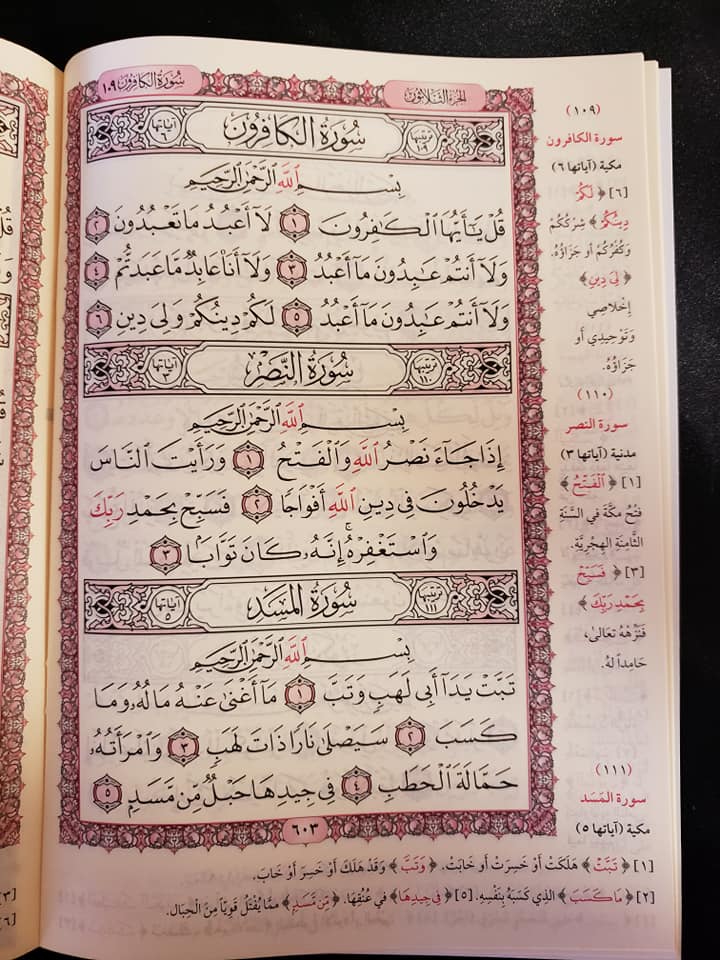 الجزء الثلاثون
سورة الكافرون ١٠٩
ترتيبها ١٠٩ سُورَةُ الكَافِرُونَ آياتها ٦
بِسْمِ ٱللَّهِ ٱلرَّحْمَٰنِ ٱلرَّحِيمِ
قُلْ يَٰٓأَيُّهَا ٱلْكَٰفِرُونَ ١ لَآ أَعْبُدُ مَا تَعْبُدُونَ ٢
وَلَآ أَنتُمْ عَٰبِدُونَ مَآ أَعْبُدُ ٣ وَلَآ أَنَا۠ عَابِدٌ مَّا عَبَدتُّمْ ٤
وَلَآ أَنتُمْ عَٰبِدُونَ مَآ أَعْبُدُ ٥ لَكُمْ دِينُكُمْ وَلِىَ دِينِ ٦
ترتيبها ١١٠ سُورَةُ النَّصْرِ آياتها ٣
بِسْمِ ٱللَّهِ ٱلرَّحْمَٰنِ ٱلرَّحِيمِ
إِذَا جَآءَ نَصْرُ ٱللَّهِ وَٱلْفَتْحُ ١ وَرَأَيْتَ ٱلنَّاسَ
يَدْخُلُونَ فِى دِينِ ٱللَّهِ أَفْوَاجًا ٢ فَسَبِّحْ بِحَمْدِ رَبِّكَ
وَٱسْتَغْفِرْهُ ۚ إِنَّهُۥ كَانَ تَوَّابًۢا ٣
ترتيبها ١١١ سُورَةُ المَسَدِ آياتها ٥
بِسْمِ ٱللَّهِ ٱلرَّحْمَٰنِ ٱلرَّحِيمِ
تَبَّتْ يَدَآ أَبِى لَهَبٍ وَتَبَّ ١ مَآ أَغْنَىٰ عَنْهُ مَالُهُۥ وَمَا
كَسَبَ ٢ سَيَصْلَىٰ نَارًا ذَاتَ لَهَبٍ ٣ وَٱمْرَأَتُهُۥ
حَمَّالَةَ ٱلْحَطَبِ ٤ فِى جِيدِهَا حَبْلٌ مِّن مَّسَدٍۭ ٥
٦٠٣
(١٠٩)
سورة الكافرون
مكية (آياتها ٦)
[٦] ﴿لَكُمْ
دِينُكُمْ﴾ شِرْكُكُمْ
وَكُفْرُكُمْ أو جَزَاؤُهُ.
﴿لِىَ دِينِ﴾
إِخْلاصِي
وَتَوْحِيدِي أَو
جَزَاؤُهُ.
(١١٠)
سورة النصر
مدنية (آياتها ٣)
[١] ﴿ٱلْفَتْحُ﴾
فَتْحُ مَكَّةَ في السَّنَةِ
الثَّامِنَةِ الهِجْرِيَّةِ.
[٣] ﴿فَسَبِّحْ
بِحَمْدِ رَبِّكَ﴾
فَنَزِّهْهُ تَعَالىٰ،
حَامِداً لهُ.
(١١١)
سورة المَسَد
مكية (آياتها ٥)
[١] ﴿تَبَّتْ﴾ هَلَكَتْ أَوْ خَسِرَتْ أو خَابَتْ. ﴿وَتَبَّ﴾ وَقَدْ هَلَكَ أَوْ خَسِرَ أَوْ خَابَ.
[٢] ﴿مَا كَسَبَ﴾ الذِي كَسَبَهُ بِنَفْسِهِ. [٥] ﴿فِى جِيدِهَا﴾ في عُنُقِهَا. ﴿مِّن مَّسَدٍ﴾ ممَّا يُفْتَلُ قَوِيّاً مِنَ الْحِبَالِ.